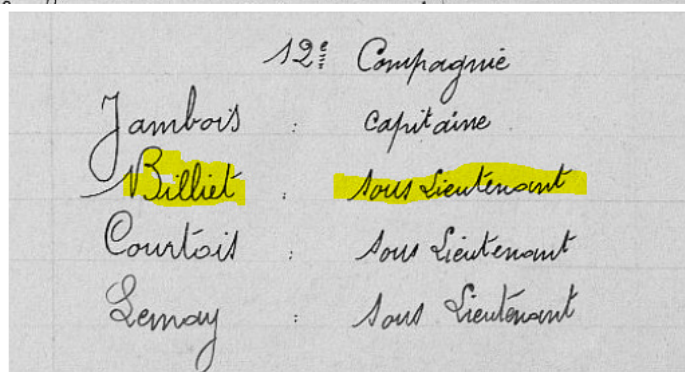 12e Compagnie
Jambois : Capitaine
Billiet : Sous Lieutenant
Courtois : Sous Lieutenant
Lemay : Sous Lieutenant